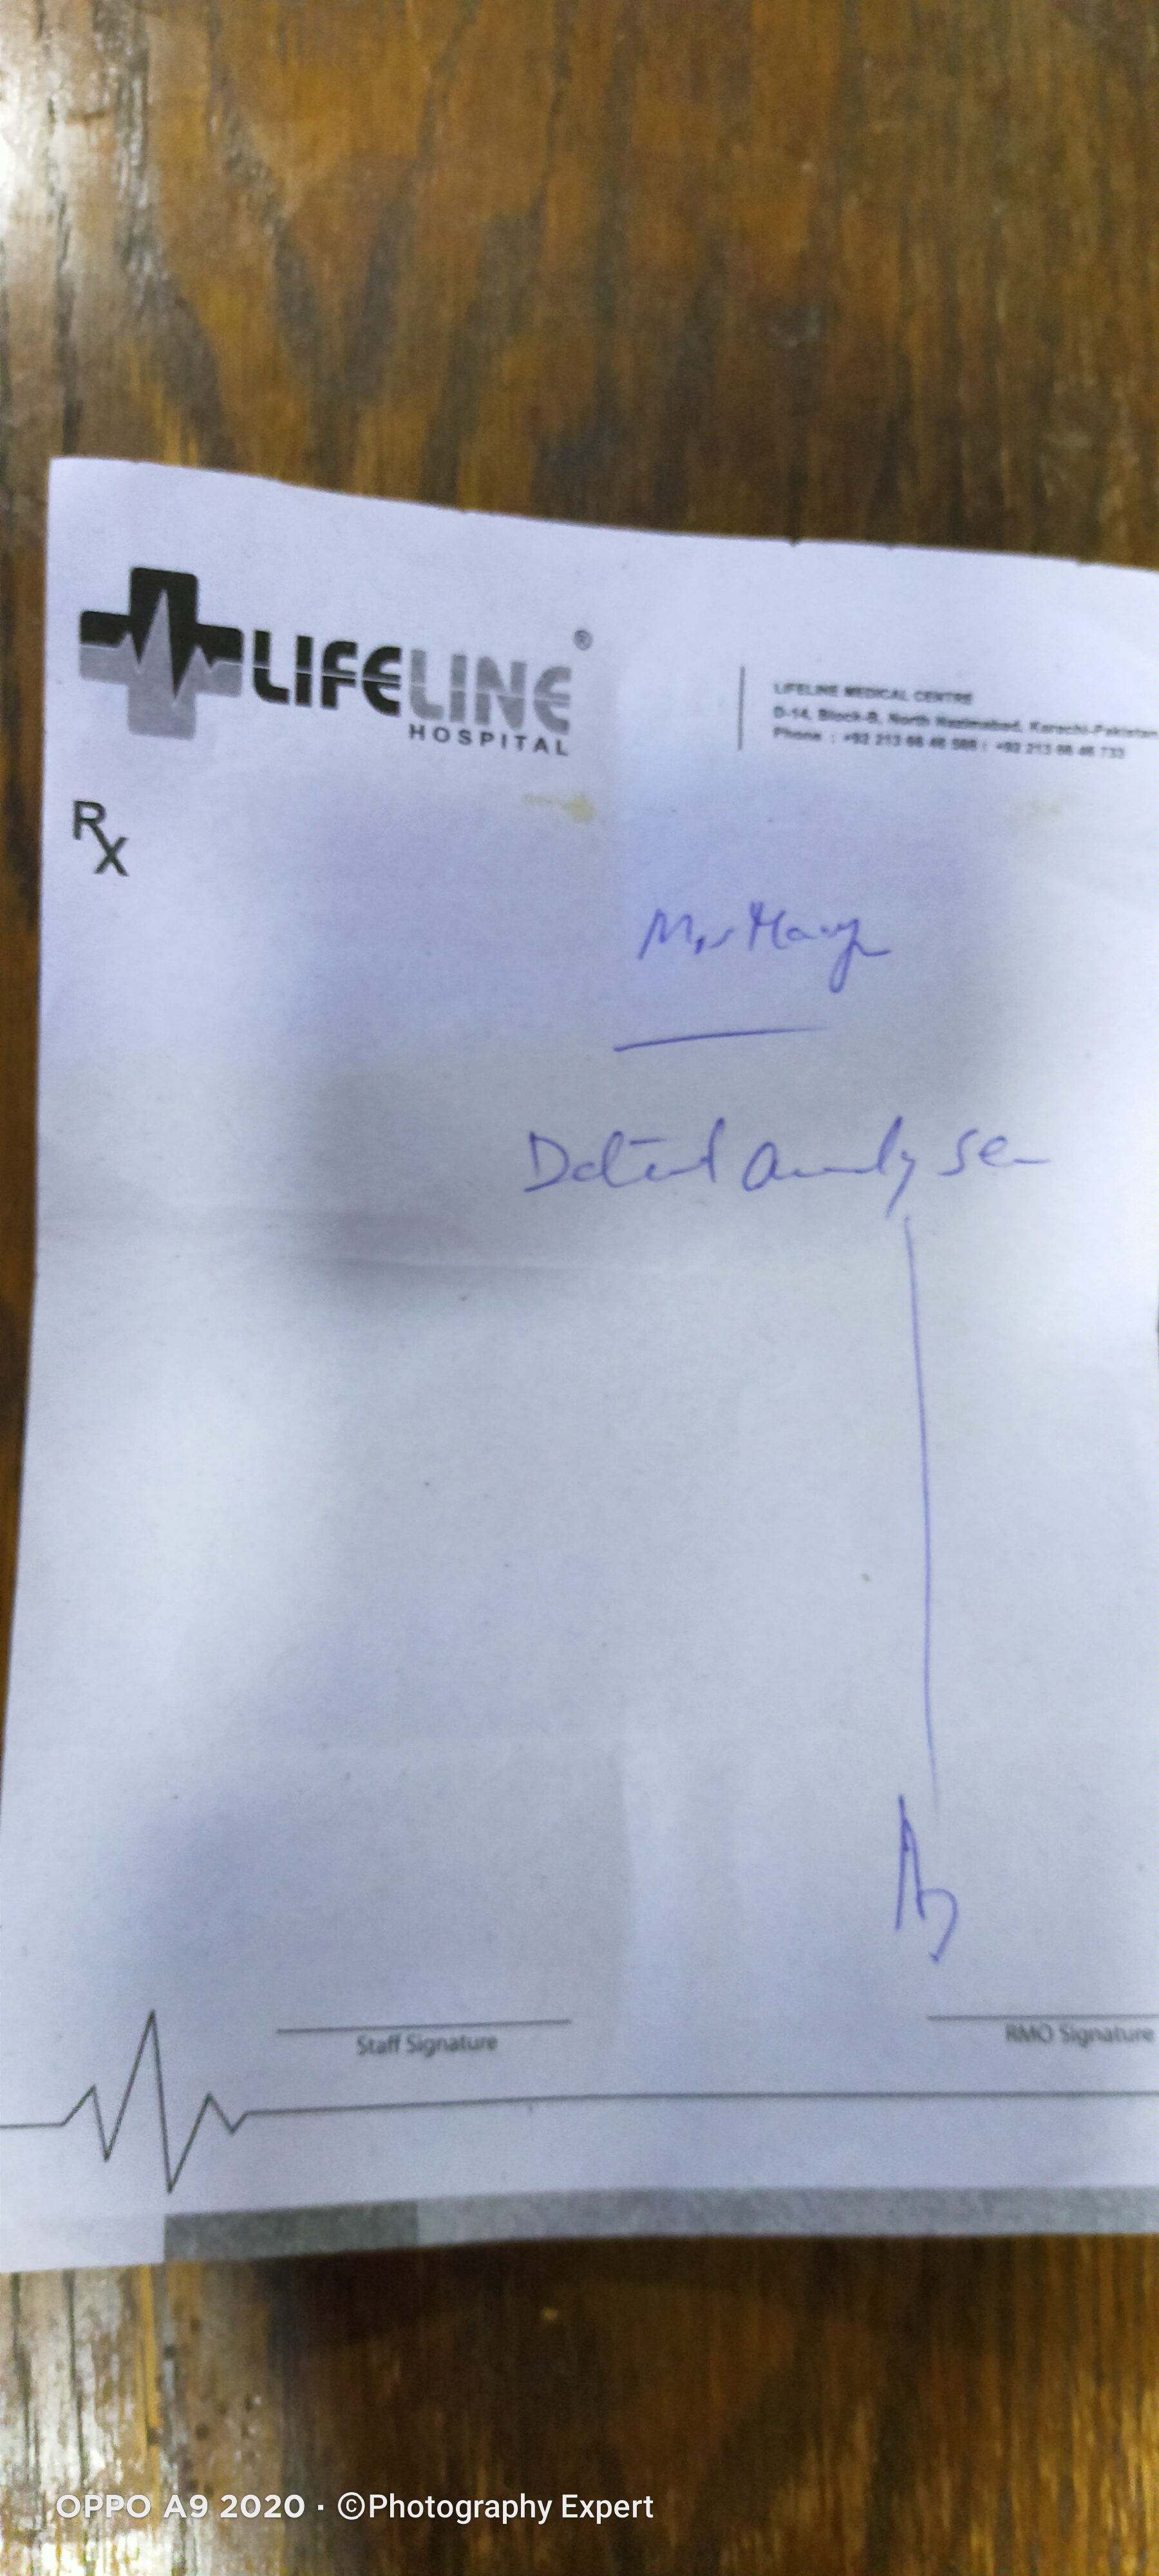 LIFELINE®
HOSPITAL
LIFELINE MEDICAL CENTRE
D-14, Block-B, North Nazimabad, Karachi-Pakistan
Phone : +92 213 66 46 566 : +92 213 66 46 733
Rx
Mrs
Staff Signature
RMO Signature
OPPO A9 2020 · ©Photography Expert